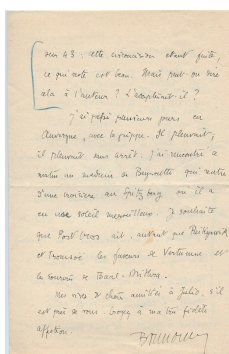 sur 43 : cette circoncision étant faite,
ce qui reste est beau. Mais peut-on dire
cela à l'auteur ? L'accepterait-il ?
J'ai passé plusieurs jours en
Auvergne, avec la grippe. Il pleuvait ;
il pleuvait sans arrêt. J'ai rencontré
matin un médecin de qui rentre
d'une croisière au Spitzberg où il a
eu un soleil merveilleux. Je souhaite
que Port Cros ait, autant que
et les faveurs de Vertumne et
le sourire de Mithra.
Mes vives et chères amitiés à Julio, s'il
est près de vous. Croyez à ma bien fidèle
affection.